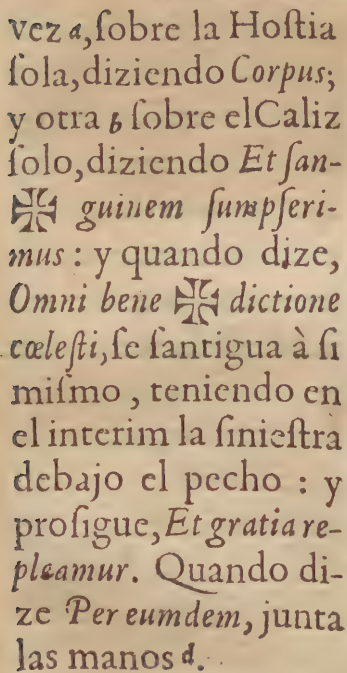 vez a, ſobre la Hoſtia
ſola, diziendo Corpus;
y otra b ſobre el Caliz
ſolo, diziendo Et ſan-
✠ guinem ſumpſeri-
mus: y quando dize,
Omni bene ✠ dictione
cœleſti, ſe ſantigua à ſi
miſmo, teniendo en
el interim la ſinieſtra
debajo el pecho: y
proſigue, Et gratia re-
pleamur. Quando di-
ze Per eumdem, junta
las manos d.